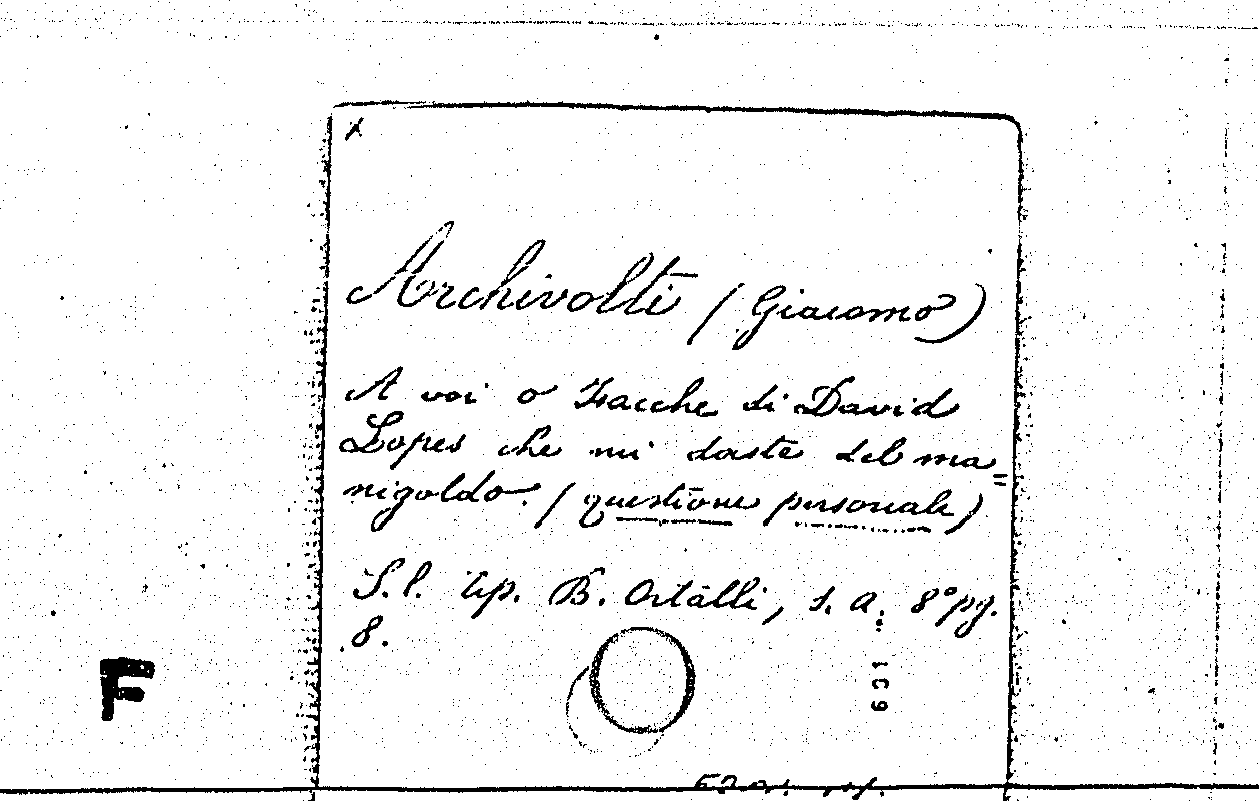 x
Archivolti (Giacomo)
A voi o Zacche di David
Lopes che mi daste del ma=
nigoldo. (questione personale)
S. l. tip. B. Ortalli, s. a. 8° pg.
8.
F